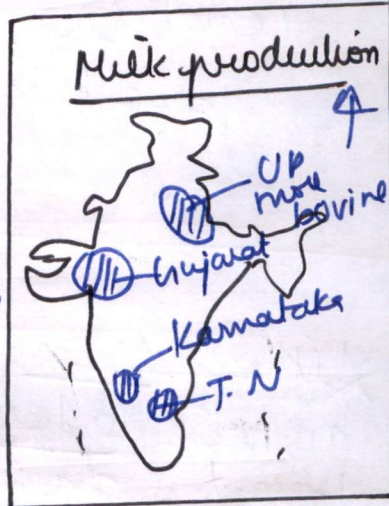 Milk production
UP
more
bovine
Gujarat
Karnataka
T.N